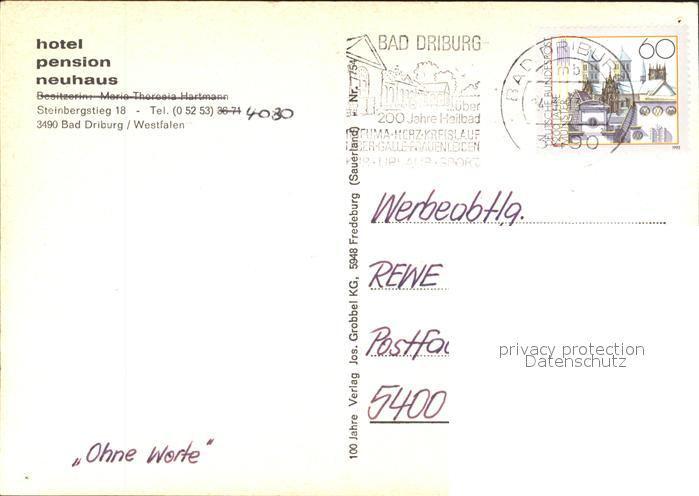 hotel
pension
neuhaus
Besitzerin: Maria-Theresia Hartmann
Steinbergstieg 18 - Tel. (0 52 53) 36 71 4030
3490 Bad Driburg / Westfalen
BAD DRIBURG
über
200 Jahre Heilbad
HERZ-KREISLAUF
GALLE-FRAUENLEIDEN
KUR-URLAUB-SPORT
BAD DRIBURG
3490
60
DEUTSCHE BUNDESPOST
1200 JAHRE
MÜNSTER
1993
100 Jahre Verlag Jos. Grobbel KG, 5948 Fredeburg (Sauerland) Nr. 7754
Werbeabtlg.
REWE
Postfac
5400
privacy protection
Datenschutz
„Ohne Worte"